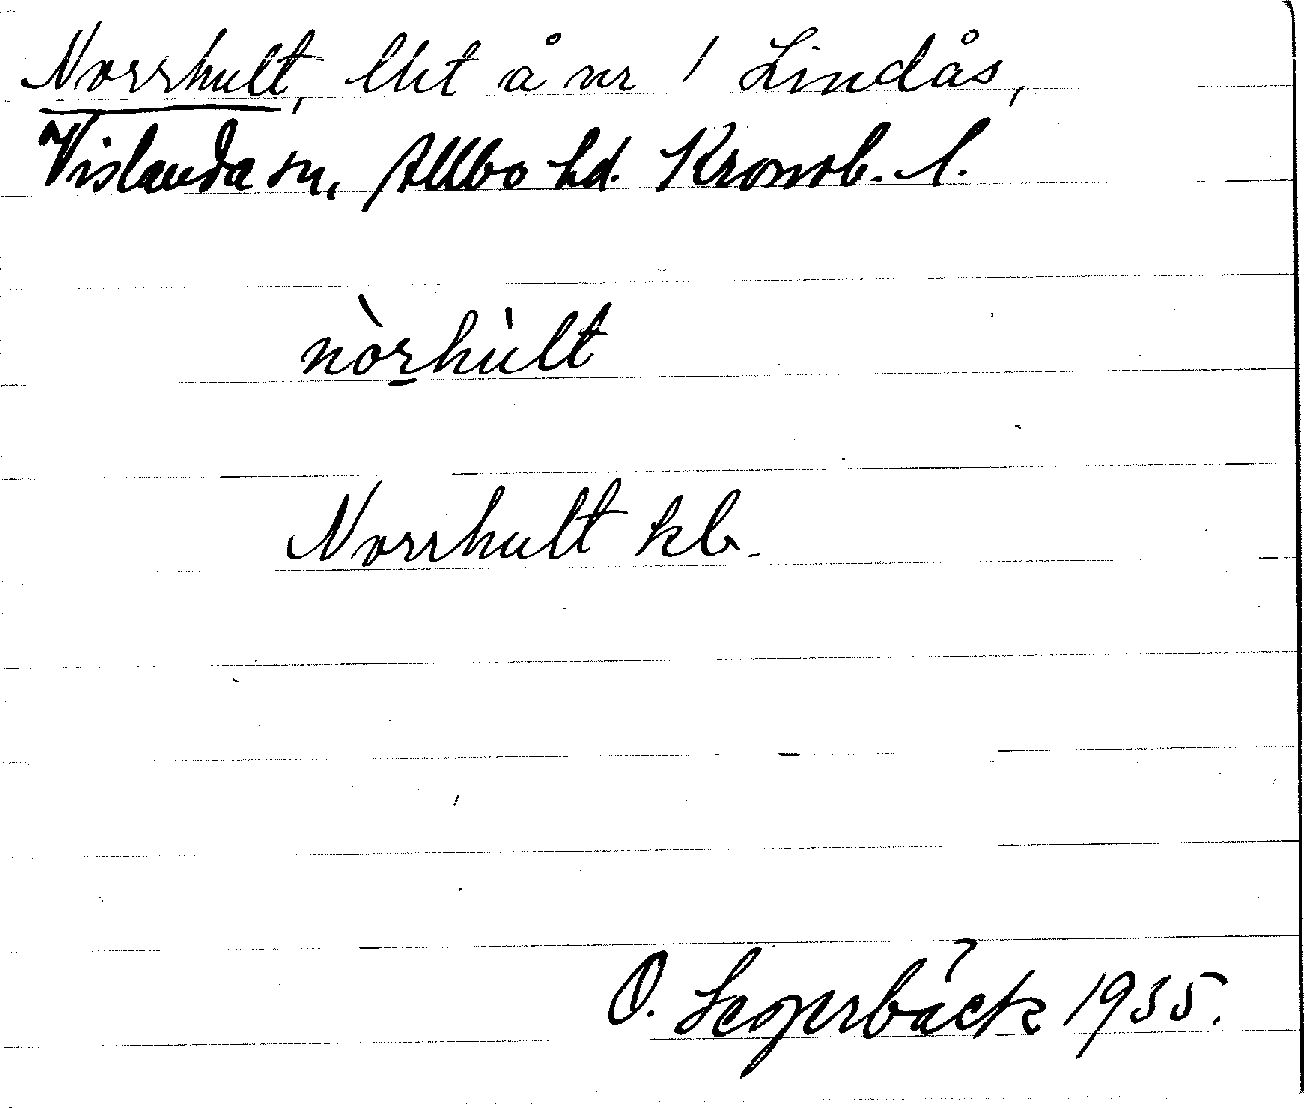 Norrhult, lht å nr 1 Lindås,
Vislanda sn, Allbo hd. Kronob. l.
nòrhùlt
Norrhult kb.
O. Segerbäck 1935.